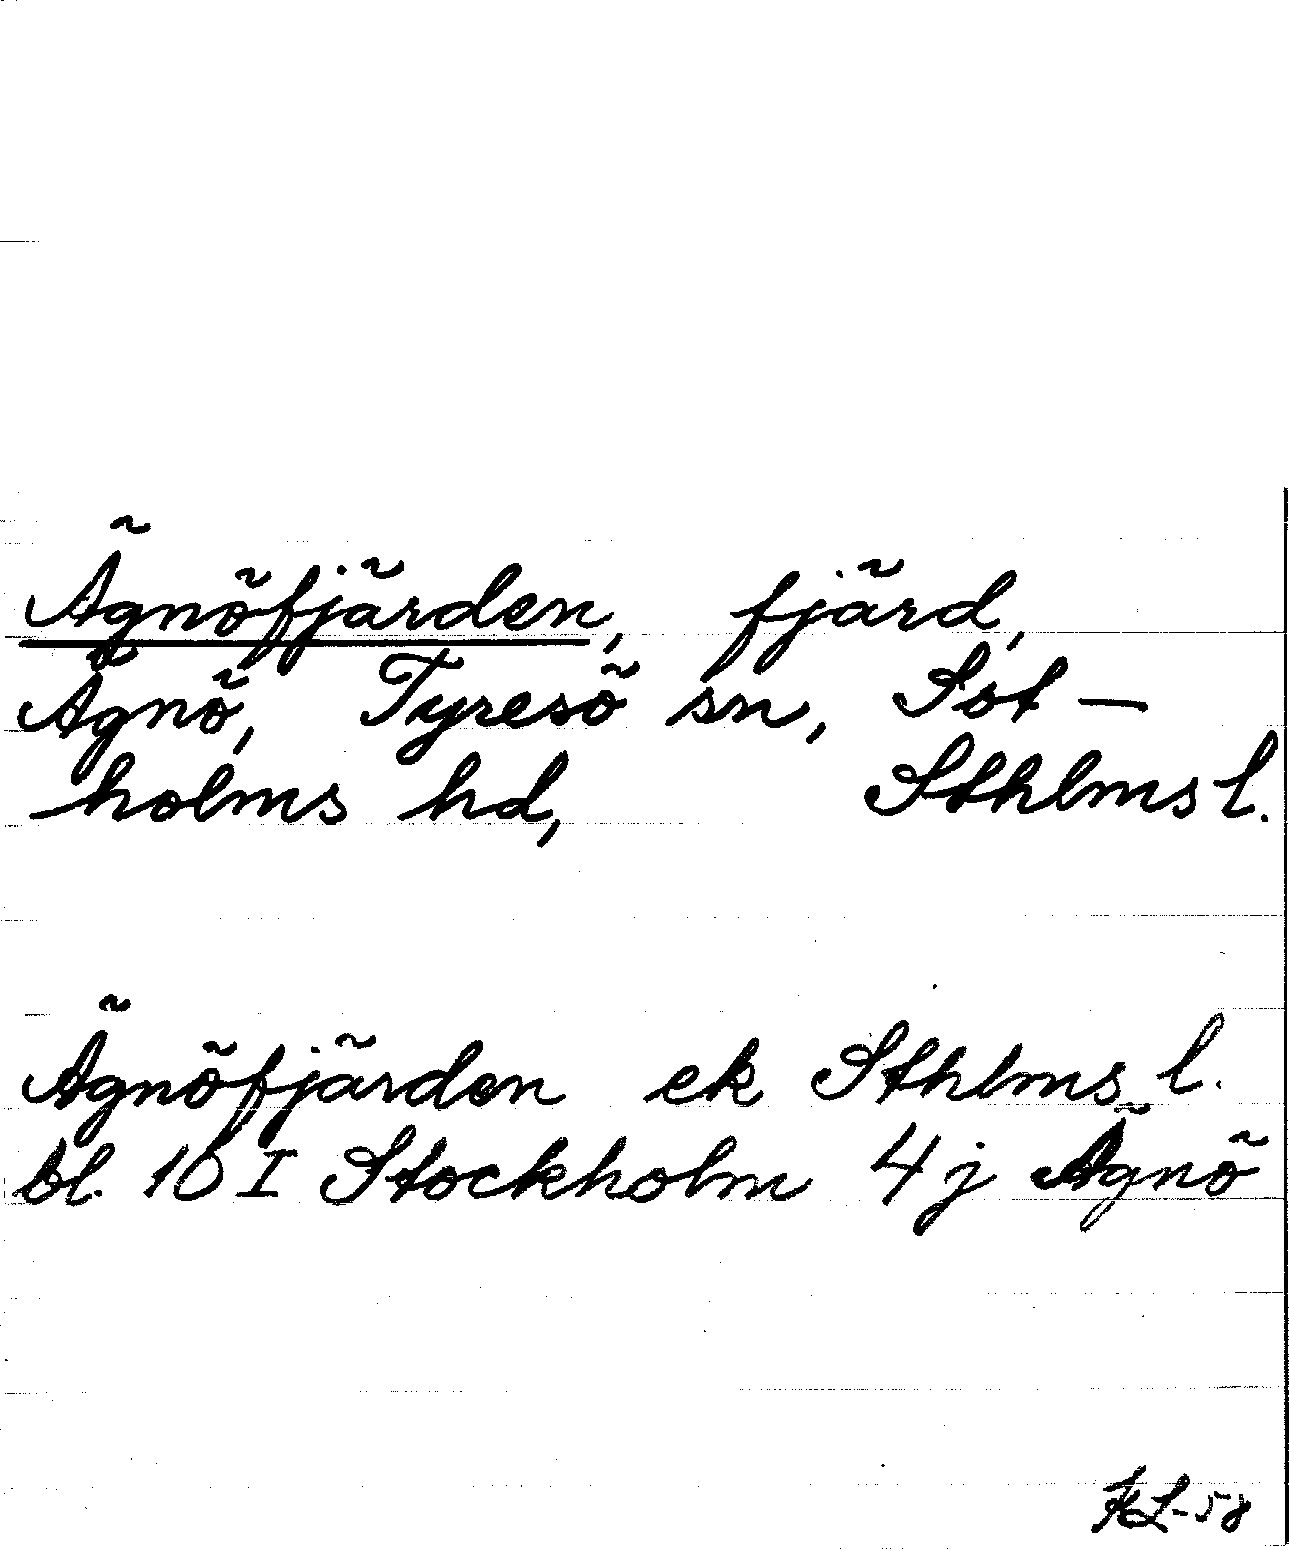 Ägnöfjärden, fjärd,
Ägnö, Tyresö sn, Sot-
holms hd, Sthlms l.
Ägnöfjärden ek Sthlms l.
bl. 10 I Stockholm 4 j Ägnö
KL-58